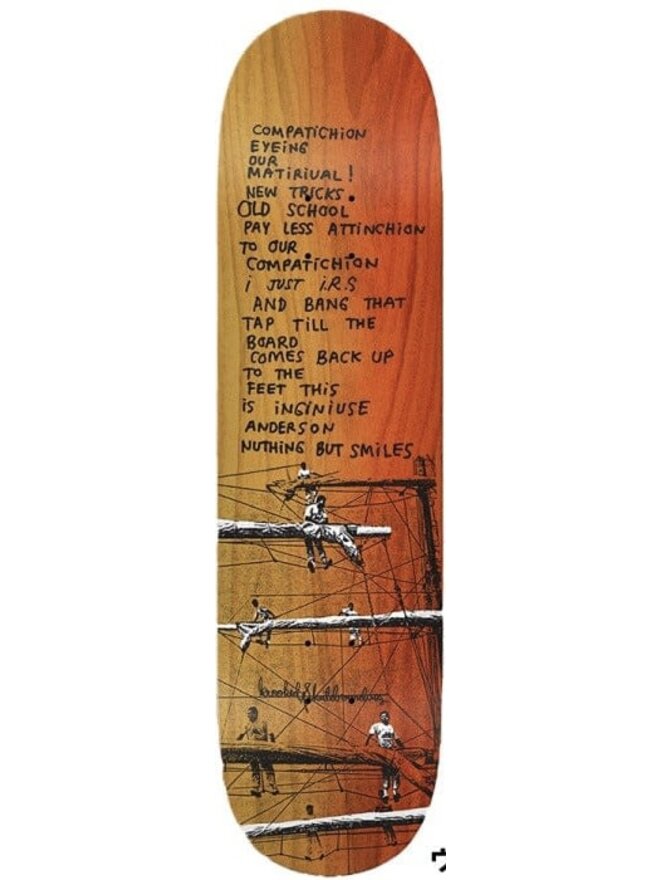 COMPATiCHiON
EYEiNG
OUR
MATiRiUAL!
NEW TRiCKS.
OLD SCHOOL
PAY LESS ATTiNCHiON
TO OUR
COMPATiCHiON
i JUST i.R.S
AND BANG THAT
TAP TiLL THE
BOARD
COMES BACK UP
TO THE
FEET THiS
iS iNGiNiUSE
ANDERSON
NUTHiNG BUT SMiLES
krooked Skateboarding
ウ